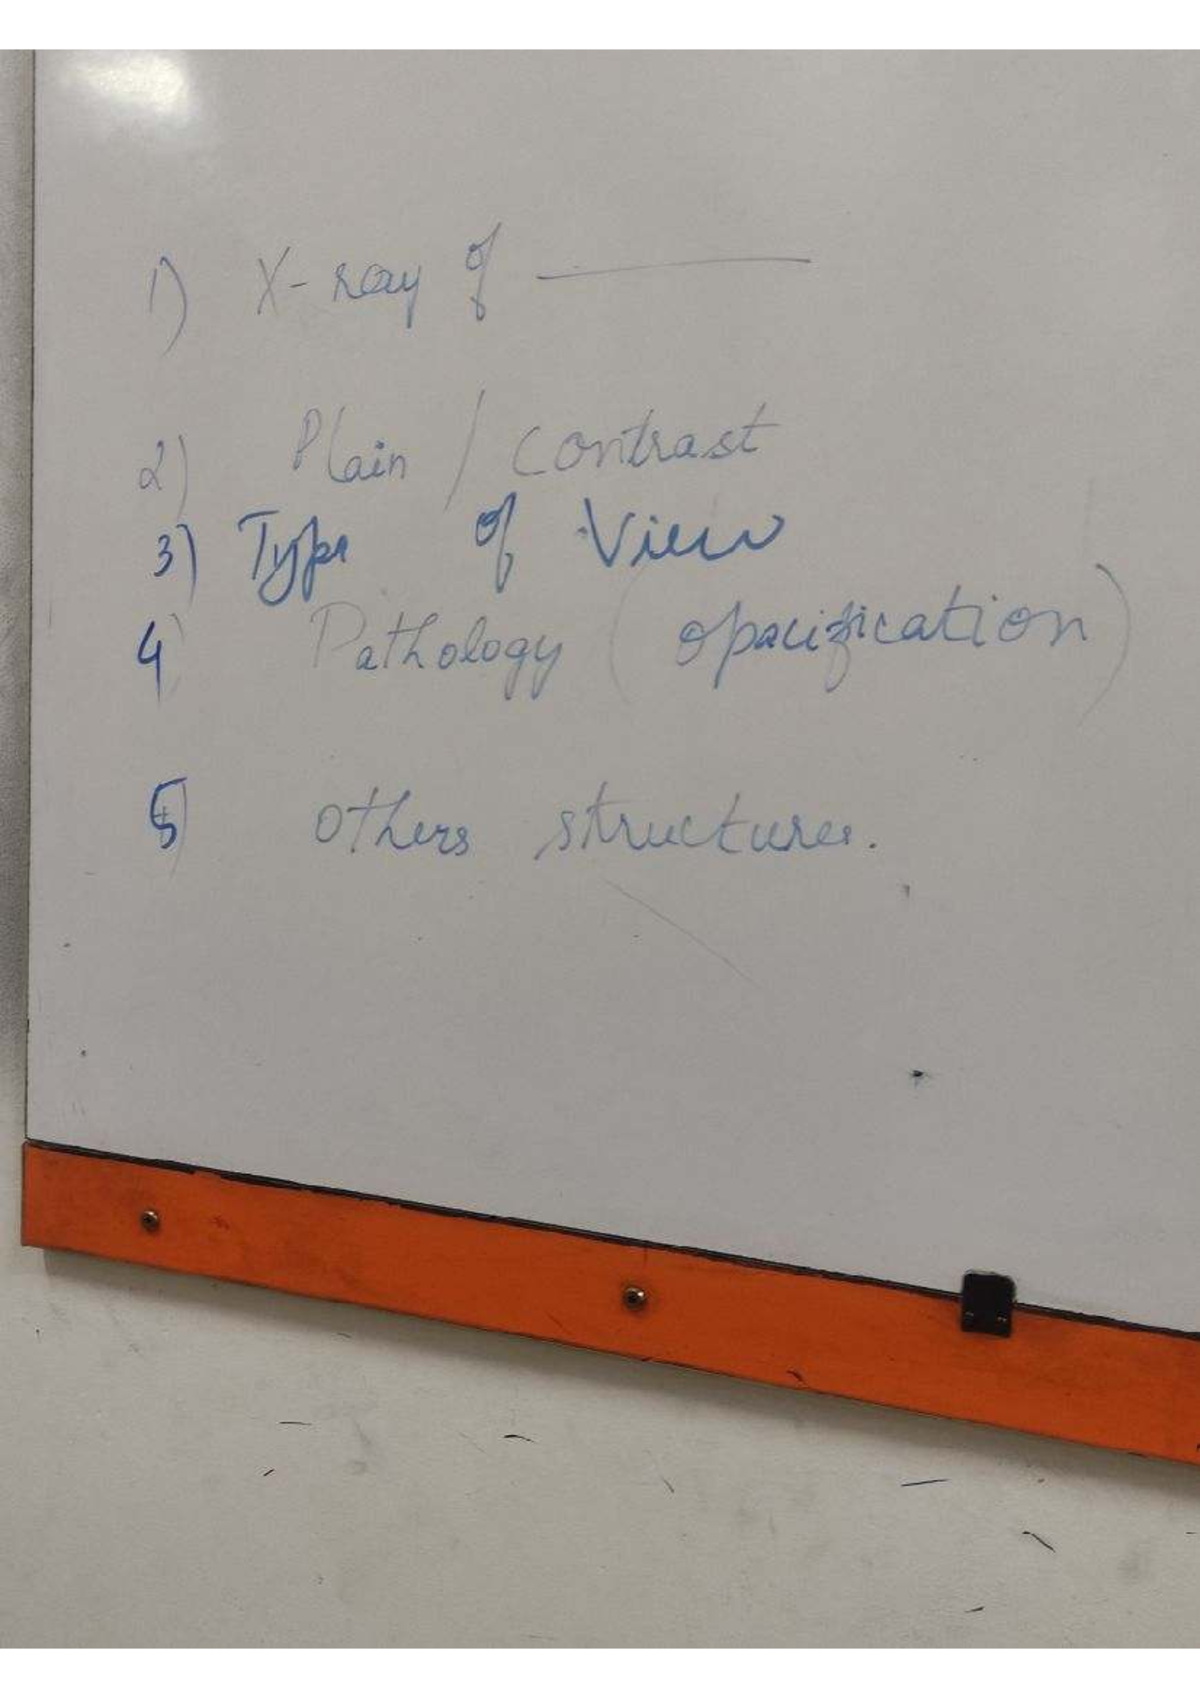 1) X-ray of ———
2) Plain / contrast
3) Type of View
4) Pathology (opacification)
5) others structures.